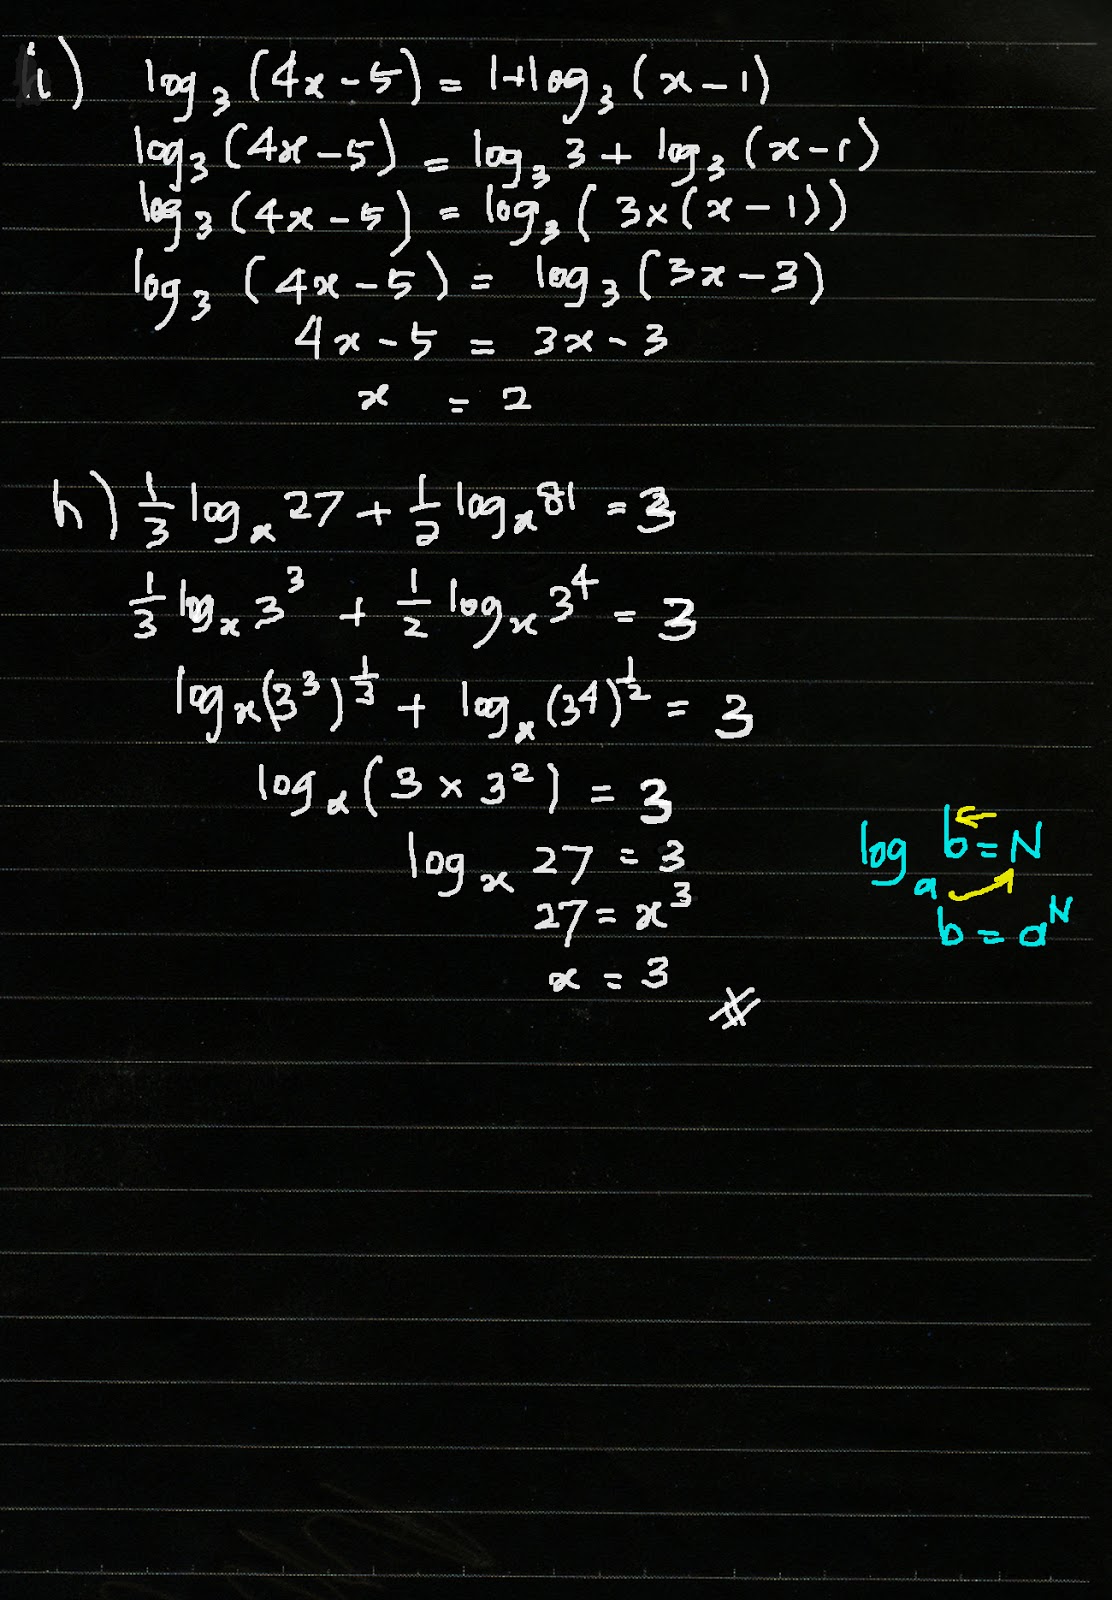 i) log₃(4x-5) = 1+log₃(x-1)
log₃(4x-5) = log₃ 3 + log₃(x-1)
log₃(4x-5) = log₃(3×(x-1))
log₃(4x-5) = log₃(3x-3)
4x-5 = 3x-3
x = 2
h) 1/3 logₓ 27 + 1/2 logₓ 81 = 3
1/3 logₓ 3³ + 1/2 logₓ 3⁴ = 3
logₓ(3³)^1/3 + logₓ(3⁴)^1/2 = 3
logₓ(3 × 3²) = 3
logₓ 27 = 3
27 = x³
x = 3
logₐ b = N
b = a^N